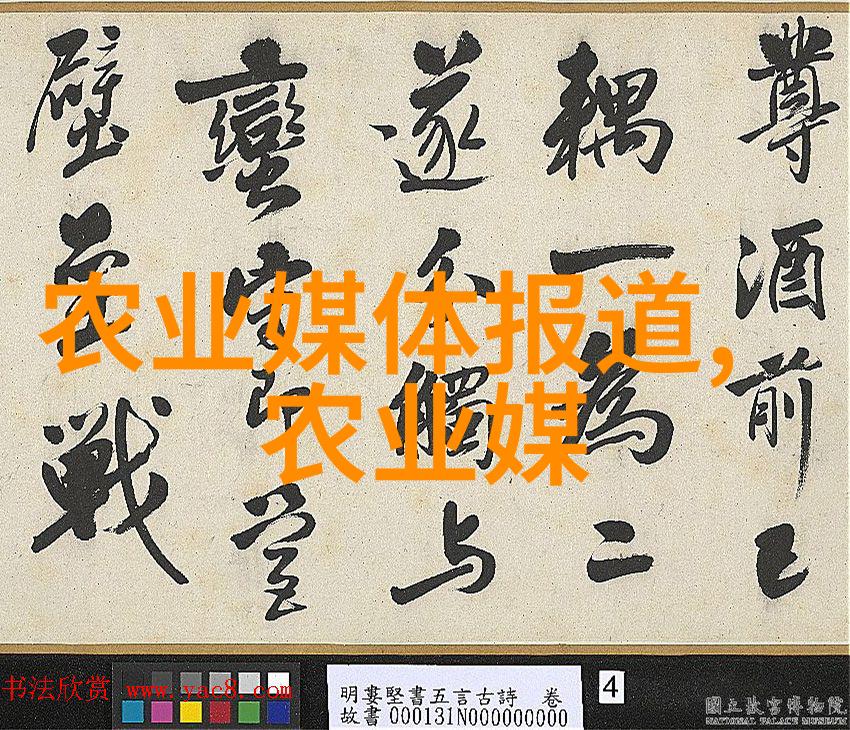 尊酒前已
耦一為二
遂觸与
蠻守即營
壁戰
农业媒体报道,
农业媒
书法欣赏 www.yac8.com
明婁堅書五言古詩 卷
故書000131N000000000
4
國立故宮博物院
NATIONAL PALACE MUSEUM